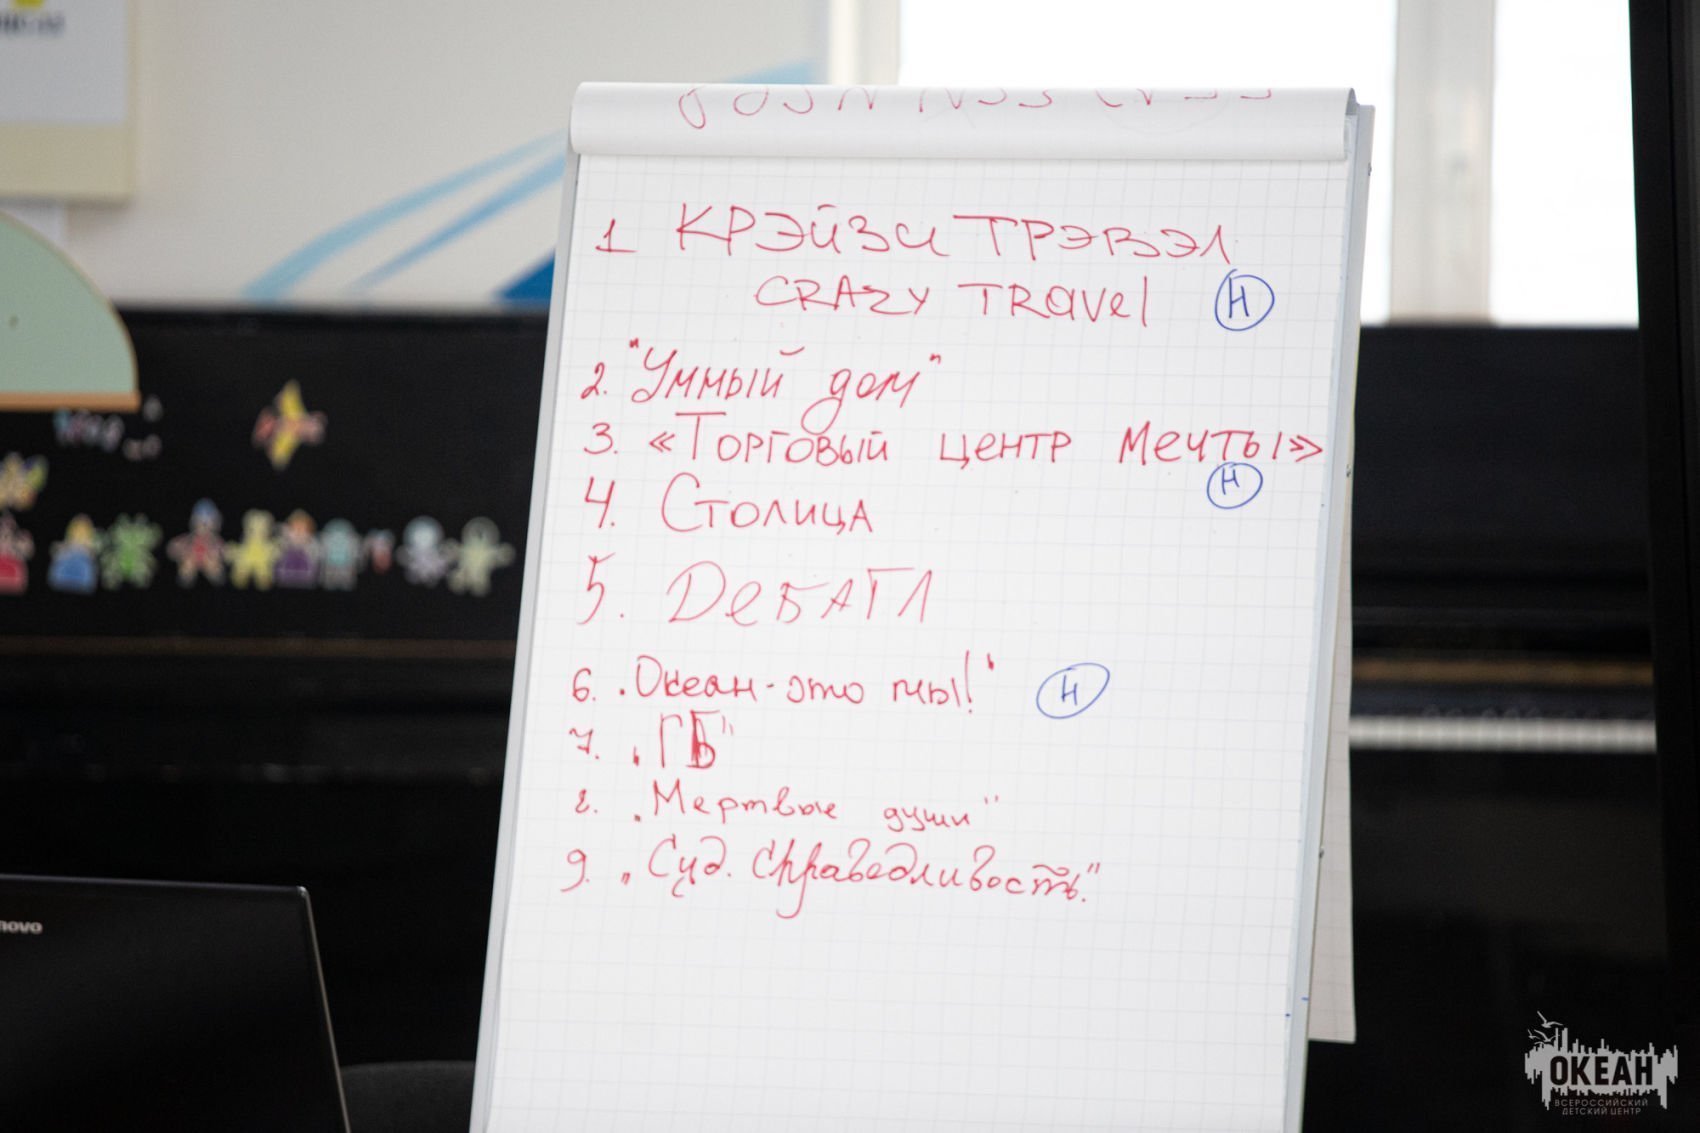 1 КРЭЙЗИ ТРЭВЭЛ
CRAZY TRavel Н
2. "Умный дом"
3. «Торговый центр мечты»
Н
4. Столица
5. ДеБАТЛ
6. „Океан - это мы!" Н
7. „ГБ"
8. „Мертвые души"
9. „Суд. Справедливость."
novo
ОКЕАН
ВСЕРОССИЙСКИЙ
ДЕТСКИЙ ЦЕНТР